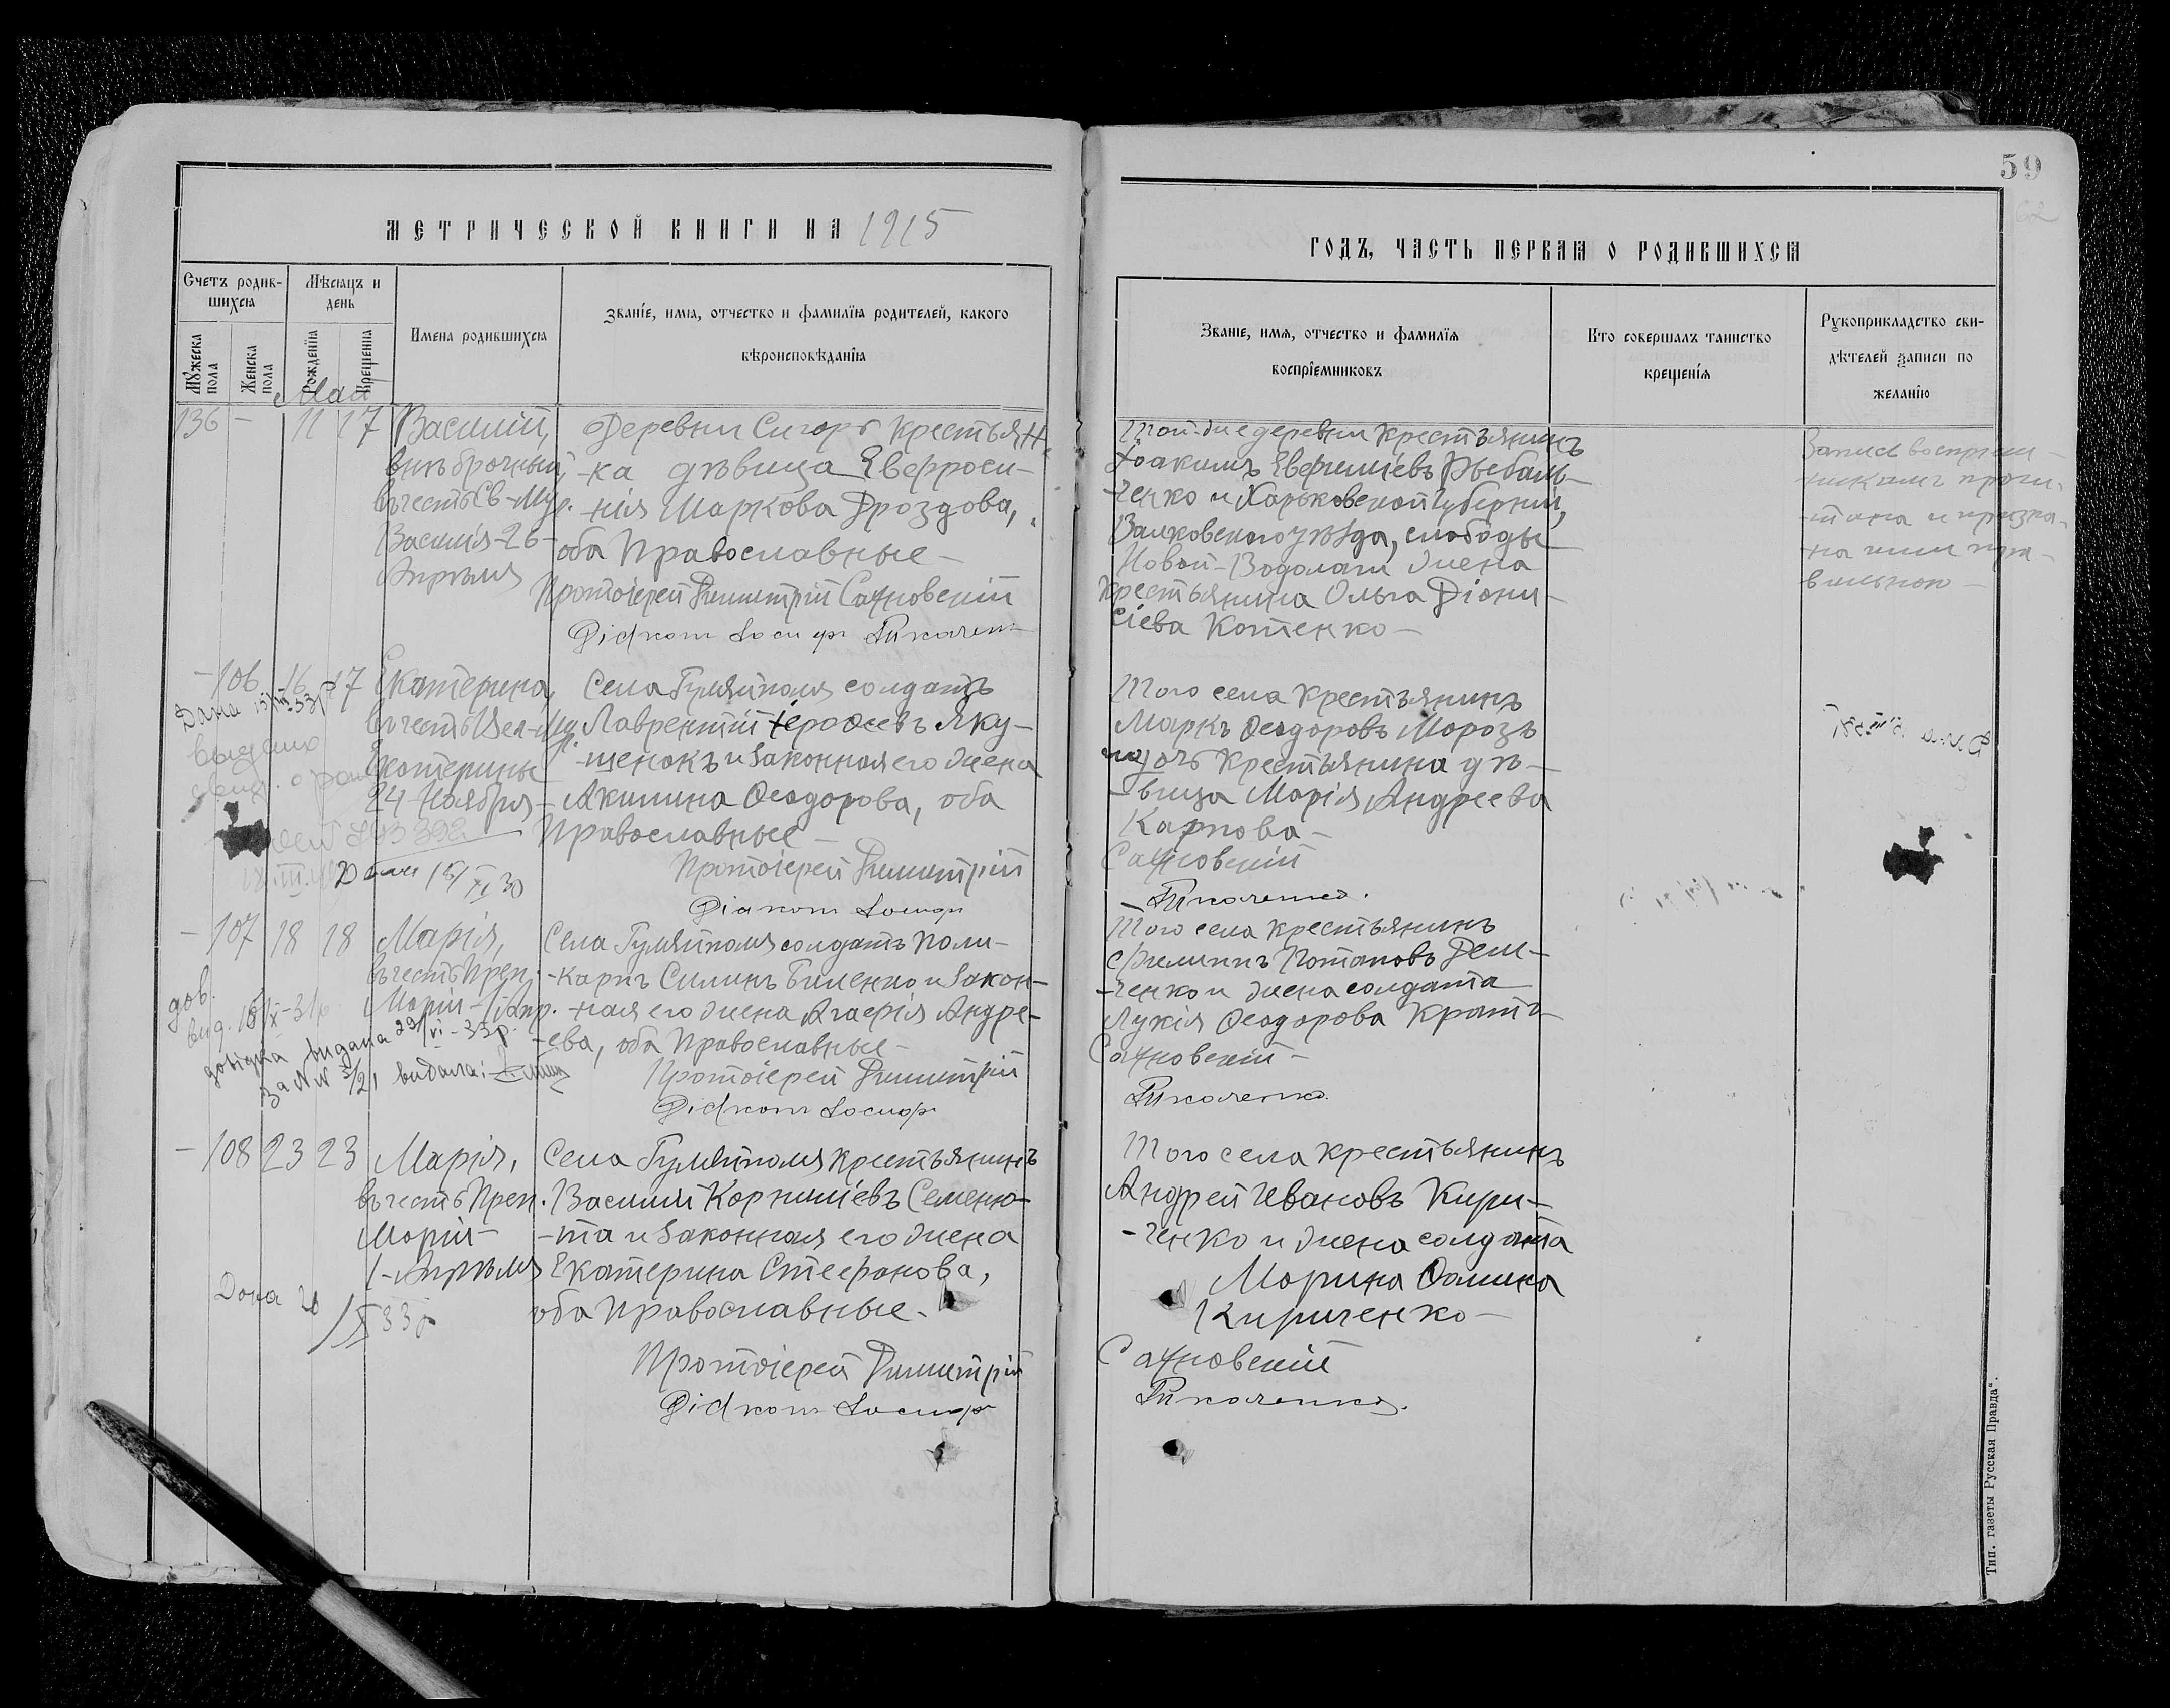 59
МЕТРИЧЕСКОЙ КНИГИ НА 1915
ГОДЪ, ЧАСТЬ ПЕРВАЯ О РОДИВШИХСЯ
Счетъ родив-
шихся
Мѣсяцъ и
день
Мужеска пола
Женска пола
Рожденія
Крещенія
Имена родившихся
Званіе, имя, отчество и фамилія родителей, какого
вѣроисповѣданія
Званіе, имя, отчество и фамилія
воспріемниковъ
Кто совершалъ таинство
крещенія
Рукоприкладство сви-
дѣтелей записи по
желанію
Май
136 - 11 17
Василій,
внѣбрачный,
въ честь Св-Муч.
Василія-26-
Апрѣля
Деревни Сигоръ крестьян-
-ка дѣвица Евфроси-
-нія Маркова Дроздова,
оба Православные-
Протоіерей Димитрій Сахновскій
Діаконъ Іосифъ
Той-же деревни крестьянинъ
Іоакимъ Евфиміевъ Рыбаль-
-ченко и Харьковской губерніи,
Валковского уѣзда, слободы
Новой-Водолаги жена
крестьянина Ольга Діони-
сіева Котенко-
Запись воспріем-
-никамъ прочи-
-тана и призна-
-на ими пра-
вильною-
-106 16 17
Екатерина,
въ честь Вел-Му
Екатерины
24 Ноября-
Села Гуляйполя солдатъ
Лаврентій Іерофеевъ Яку-
-щенокъ и законная его жена
-Акилина Ѳеодорова, оба
Православные-
Протоіерей Димитрій
Діаконъ Іосифъ
Того села крестьянинъ
Маркъ Ѳеодоровъ Морозъ
и дочь крестьянина дѣ-
-вица Марія Андреева
Карпова-
Сахновскій
Дана
-107 18 18
Марія,
въ честь Преп.
Маріи-1 Апр.
Села Гуляйполя солдатъ Поли-
-карпъ Силинъ Биленко и закон-
-ная его жена Агафія Андре-
-ева, оба Православные-
Протоіерей Димитрій
Діаконъ Іосифъ
Того села крестьянинъ
Филиппъ Потаповъ Дем-
-ченко и жена солдата
Лукія Ѳеодорова Кратъ-
Сахновскій-
дов.
довідка видана 29/VI-35р.
за № 5/21 видала:
-108 23 23
Марія,
въ честь Преп.
Маріи-
1-Апрѣля
Села Гуляйполя крестьянинъ
Василій Корниліевъ Семеню-
-та и законная его жена
Екатерина Стефанова,
оба Православные-
Протоіерей Димитрій
Діаконъ Іосифъ
Того села крестьянинъ
Андрей Ивановъ Кири-
-ченко и жена солдата
Марина Ѳомина
Кириченко-
Сахновскій
Дана
Тип. газеты „Русская Правда“.